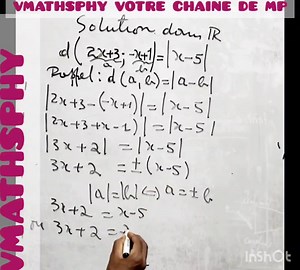 VMATHSPHY VOTRE CHAINE DE MP
VMATHSPHY
Solution dans ℝ
d(2x+3; -x+1) = |x-5|
a b
Rappel: d(a,b) = |a-b|
|2x+3-(-x+1)| = |x-5|
|2x+3+x-1| = |x-5|
|3x+2| = |x-5|
3x+2 = ±(x-5)
|a|=|b| ⇔ a=±b
3x+2 = x-5
ou 3x+2 =
InShot